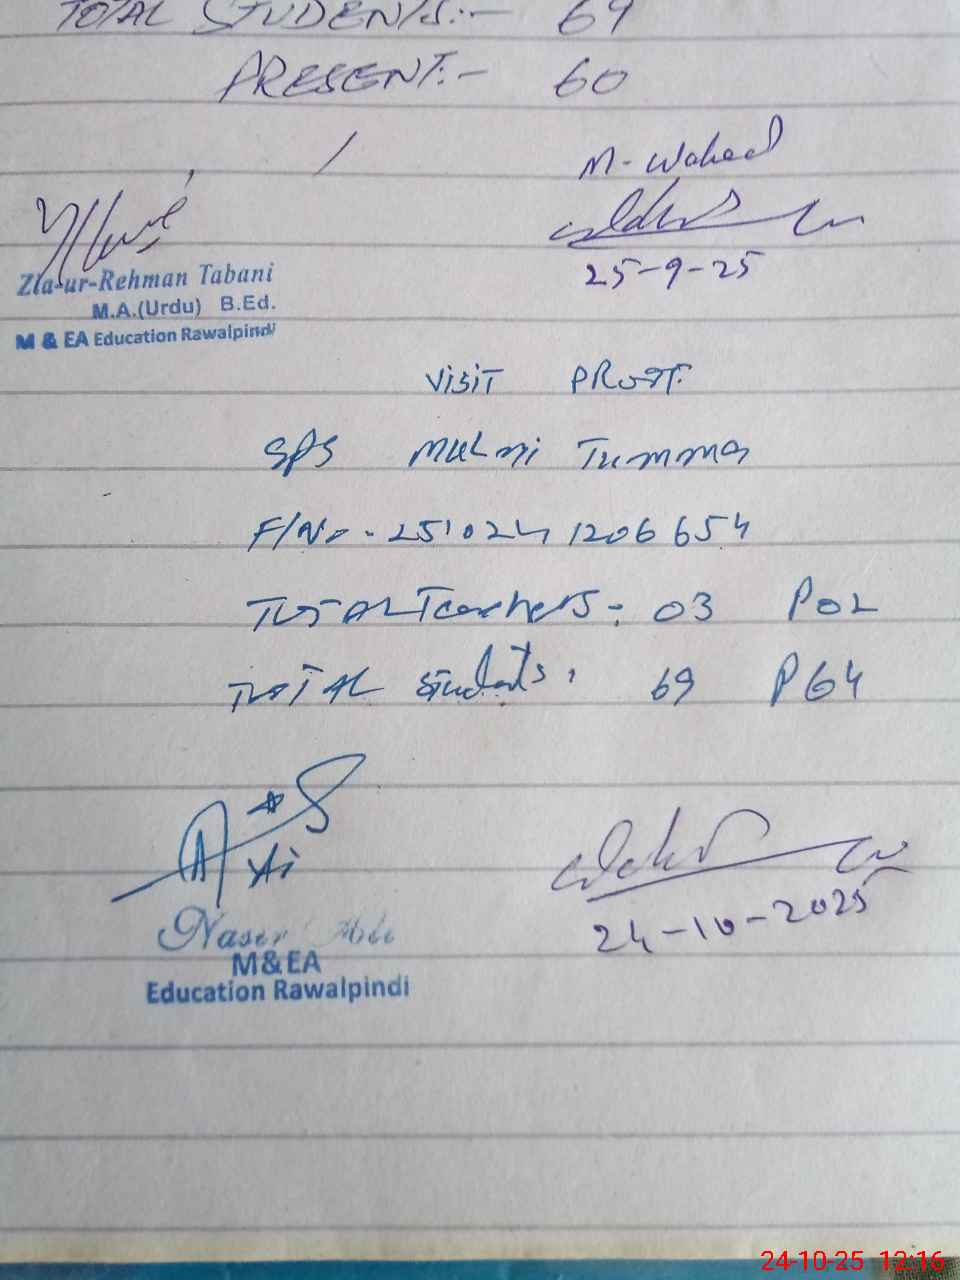 TOTAL STUDENTS:- 69
PRESENT:- 60
M. Waheed
25-9-25
Zia-ur-Rehman Tabani
M.A.(Urdu) B.Ed.
M & EA Education Rawalpindi
VISIT PROFF.
SPS
F/No. 251024 1206654
TOTAL Teachers: 03 P02
TOTAL Students: 69 P64
Ali
24-10-2025
Nasir Ali
M&EA
Education Rawalpindi
24-10-25 12:16